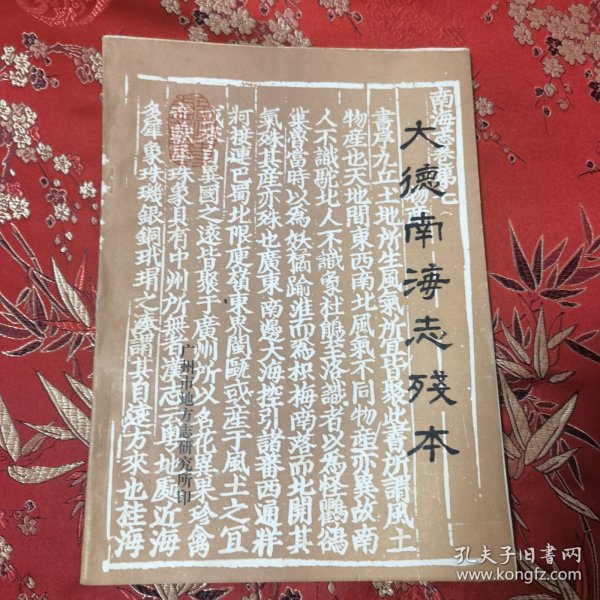 大德南海志殘本
南海志卷第七
書序九丘土地所生風氣所宜皆聚此書所謂風土
物產也天地間東西南北風氣不同物產亦異故南
人不識駝北人不識象杜鵑至洛識者以為怪鸜鵒
巢魯當時以為妖橘踰淮而為枳梅南路而北開其
氣殊其產亦殊也廣東南邊大海控引諸番西通牂
牁接連巴蜀北限庾嶺東界閩甌或產于風土之宜
異國之遠皆聚于廣州所以名花異果珍禽
珠象具有中州所無
地處近海
多犀象珠璣銀銅玳瑁之湊謂其自遠方來也桂海
广州市地方志研究所印
孔夫子旧书网
www.kongfz.com